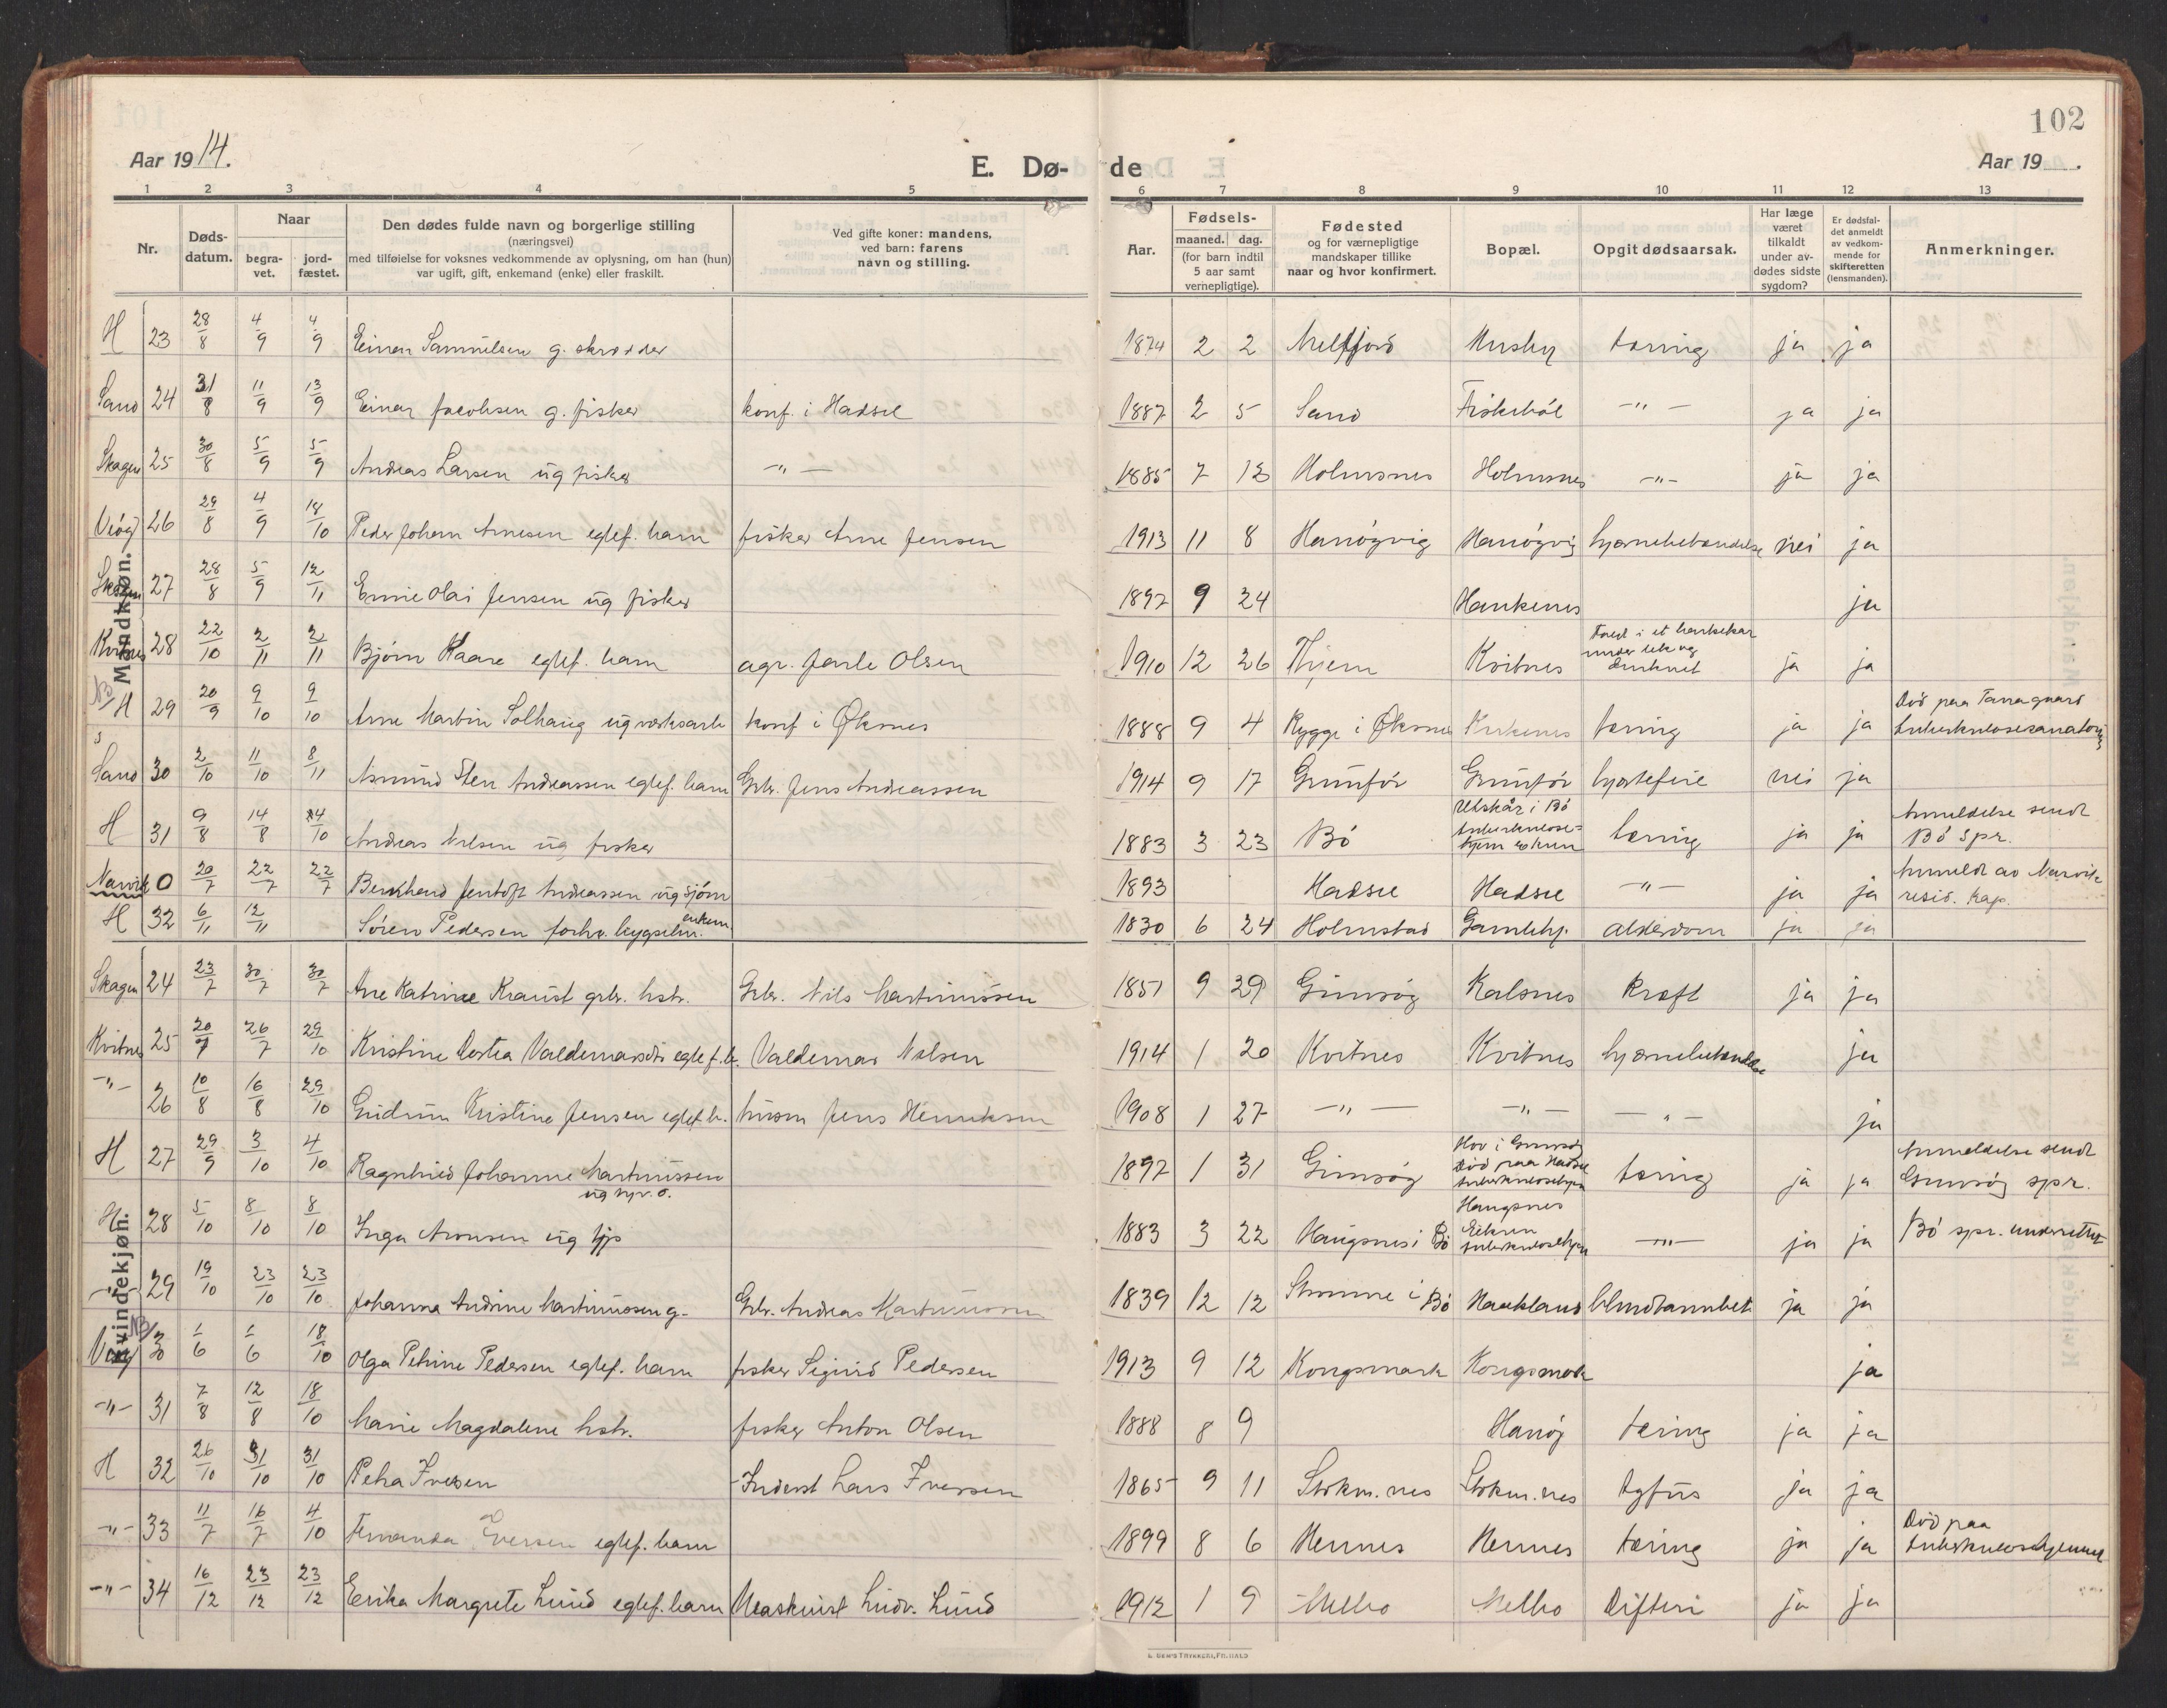 102
Aar 1914.
E. Dø-
de
Aar 19 .
1 2 3 4 5 6 7 8 9 10 11 12 13
Nr.
Døds-
datum.
Naar
begra-
vet.
jord-
fæstet.
Den dødes fulde navn og borgerlige stilling
(næringsvei)
med tilføielse for voksnes vedkommende av oplysning, om han (hun)
var ugift, gift, enkemand (enke) eller fraskilt.
Ved gifte koner: mandens,
ved barn: farens
navn og stilling.
Aar.
Fødsels-
maaned. dag.
(for barn indtil
5 aar samt
vernepligtige).
Fødested
og for værnepligtige
mandskaper tillike
naar og hvor konfirmert.
Bopæl.
Opgit dødsaarsak.
Har læge
været
tilkaldt
under av-
dødes sidste
sygdom?
Er dødsfal-
det anmeldt
av vedkom-
mende for
skifteretten
(lensmanden).
Anmerkninger.
Mandkjøn.
H 23 28/8 4/9 4/9 Einar Samuelsen g. skrædder 1874 2 2 Melfjord Husby tæring ja ja
Sand 24 31/8 11/9 13/9 Einar Jacobsen g. fisker konf. i Hadsel 1887 2 5 Sand Fiskebøl -"- ja ja
Skagen 25 30/8 5/9 5/9 Andreas Larsen ug fisker -"- 1885 7 12 Holmsnes Holmsnes -"- ja ja
26 29/8 4/9 18/10 Peder Johan Arnesen egtef. barn fisker Arne Jensen 1913 11 8 Hanøyvig Hanøyvig hjernebetændelse nei ja
Skagen 27 28/8 5/9 12/11 Olai Jensen ug fisker 1897 9 24 Haukenes ja
Kvitnes 28 22/10 2/11 2/11 Bjørn Kaare egtef. barn agr. Jarle Olsen 1910 12 26 Kvitnes
under lek og
druknet ja ja
NB H 29 20/9 9/10 9/10 Arne Martin Solhaug ug verksarb konf i Øksnes 1888 9 4 Rygge i Øksnes tæring ja ja Død paa
tuberkulosesanatorium
Sand 30 2/10 11/10 8/11 Asmund Sten Andreassen egtef. barn Grb. Jens Andreassen 1914 9 17 Grunfør Grunfør hjertefeil nei ja
H 31 9/8 14/8 14/10 Andreas Nilsen ug fisker 1883 3 23 Bø Utskår i Bø
tuberkulose-
hjem tæring ja ja Anmeldelse sendt
Bø spr.
Narvik 0 20/7 22/7 22/7 Bernhard Jentoft Andreassen ug sjøm 1893 Hadsel Hadsel -"- ja ja Anmeldt av Narvik
resid. kap.
H 32 6/11 12/11 Søren Pedersen forhv. bygselm. enkem. 1830 6 24 Holmstad Gamlehj. alderdom ja ja
Kvindekjøn.
Skagen 24 23/7 30/7 30/7 Ane Katrine grb. hstr. Grb. Nils Martinussen 1851 9 29 Gimsøy Kalsnes kræft ja ja
Kvitnes 25 20/7 26/7 29/10 Kristine Valdemarsdtr egtef. b. Valdemar Nilsen 1914 1 20 Kvitnes Kvitnes hjernebetændelse ja
-"- 26 10/8 16/8 29/10 Gudrun Kristine Jensen egtef. b. Jens Henriksen 1908 1 27 -"- -"- -"- ja
H 27 29/9 3/10 4/10 Ragnhild Johanne Martinussen
1897 1 31 Gimsøy Hov i Gimsøy
død paa Hadsel
tuberkulosehjem tæring ja ja Anmeldelse sendt
Gimsøy spr.
H 28 5/10 8/10 8/10 Inga Aronsen ug tjp 1883 3 22 Haugsnes i Bø Haugsnes
tuberkulosehjem -"- ja ja Bø spr. underrettet
-"- 29 19/10 23/10 23/10 Johanna Andrine Martinussen g. Grb. Andreas Martinussen 1839 12 12 i Bø Haukland blindtarmbet ja ja
NB 30 1/6 1/6 18/10 Olga Petrine Pedersen egtef. barn fisker Sigurd Pedersen 1913 9 12 Kongsmark Kongsmark ja
-"- 31 7/8 12/8 18/10 Marie Magdalene hstr. fisker Anton Olsen 1888 8 9 Hanøy tæring ja ja
H 32 26/10 31/10 31/10 Petra Iversen Inderst Lars Iversen 1865 9 11 Stokm.nes Stokm.nes tyfus ja ja
-"- 33 11/7 16/7 4/10 Fernanda Eversen egtef. barn 1899 8 6 Hennes Hennes tæring ja ja Død paa
tuberkulosehjemmet
-"- 34 16/12 23/12 23/12 Erika Margrete Lund egtef. barn Maskinist Ludv. Lund 1912 1 9 Melbo Melbo Difteri ja ja